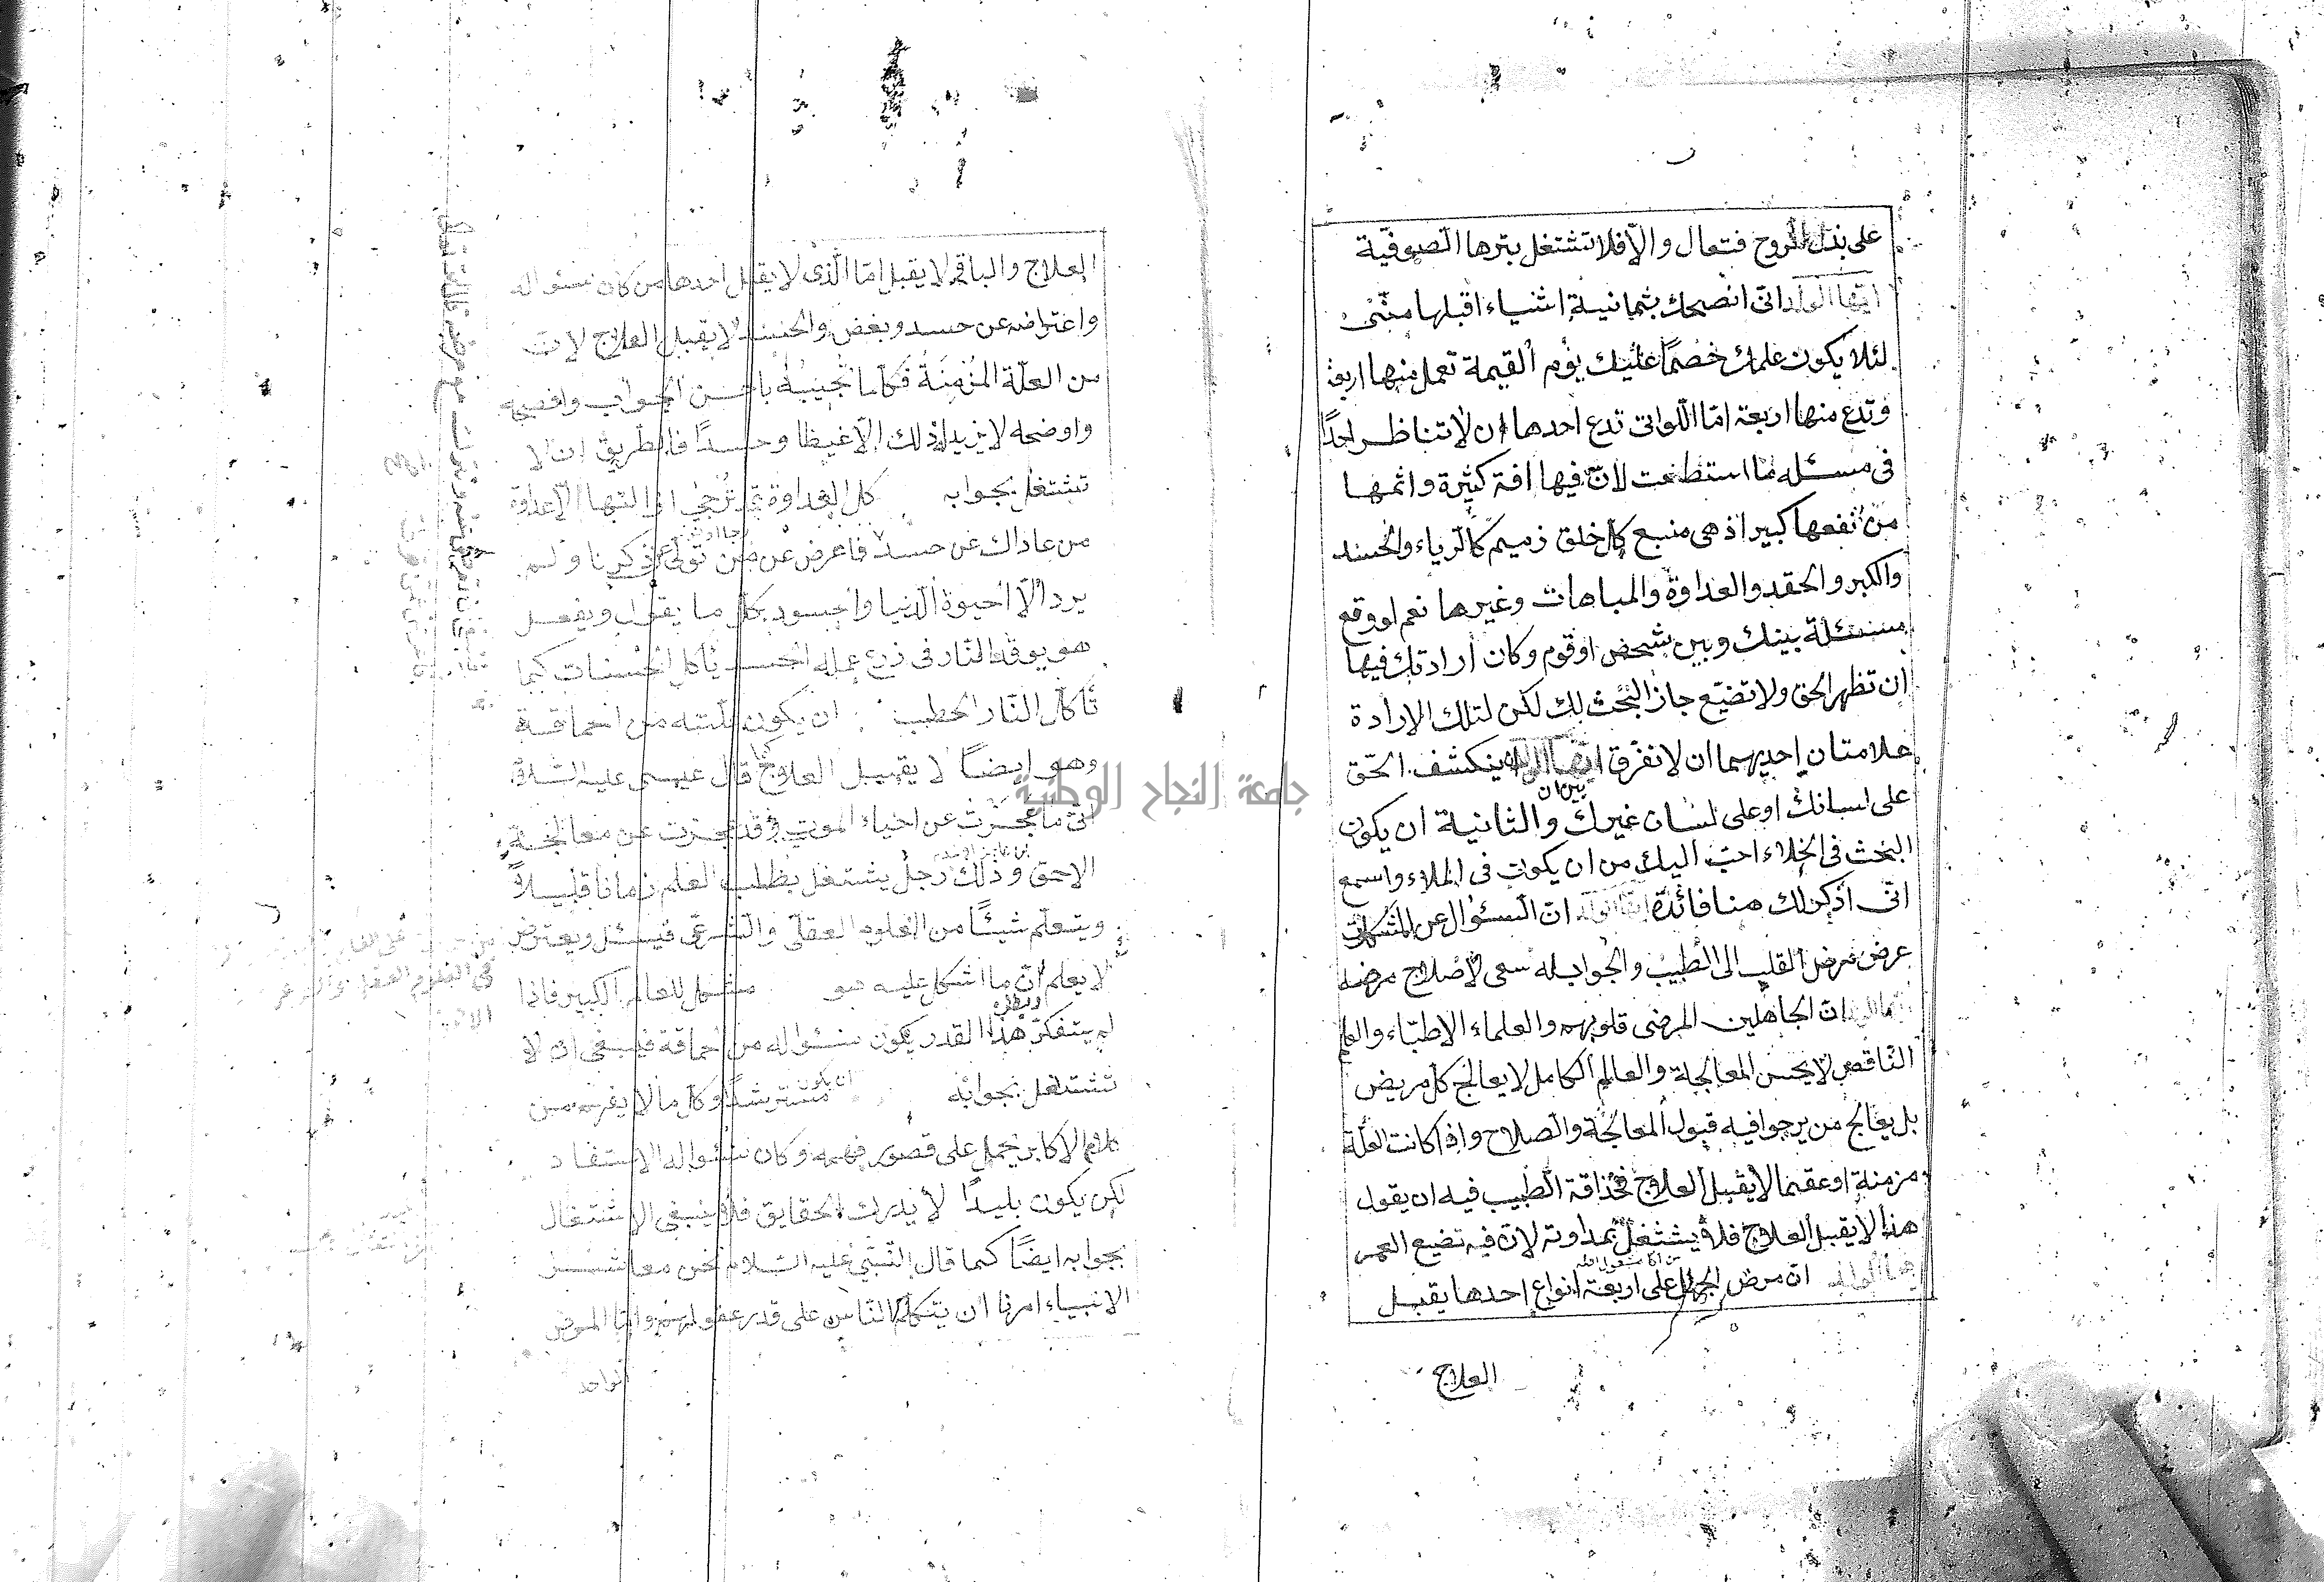 على بذل الروح فتعال والا فلا تشتغل بترها الصوفية
ايها الولد انى انصحك بثمانية اشياء اقبلها منى
لئلا يكون علمك خصما عليك يوم القيمة تعمل منها اربعة
وتدع منها اربعة اما اللواتى تدع احدها ان لا تناظر احدا
فى مسئله ما استطعت لان فيها افة كثيرة واثمها
من نفعها كبير اذ هى منبع كل خلق زميم كالرياء والحسد
والكبر والحقد والعداوة والمباهات وغيرها نعم لو وقع
مسئلة بينك وبين شخص او قوم وكان ارادتك فيها
ان تظهر الحق ولا تضيع جاز البحث لك لكن لتلك الارادة
علامتان احديهما ان لا تفرق ايها الولد ينكشف الحق
بين ان
على لسانك او على لسان غيرك والثانية ان يكون
البحث فى الخلاء احب اليك من ان يكون فى الملاء واسمع
انى اذكر لك هنا فائدة ايها الولد ان السئوال عن المشكلات
عرض مرض القلب الى الطبيب والجواب له سعى لاصلاح مرضه
ايها الولد ان الجاهلين المرضى قلوبهم والعلماء الاطباء والعالم
الناقص لا يحسن المعالجة والعالم الكامل لا يعالج كل مريض
بل يعالج من يرجو فيه قبول المعالجة والصلاح واذا كانت العلة
مزمنة او عقما لا يقبل العلاج فحذاقة الطبيب فيه ان يقول
هذا لا يقبل العلاج فلا يشتغل بمداوته لان فيه تضيع العمر
ايها الولد ان مرض الجهل على اربعة انواع احدها يقبل
العلاج
العلاج والباقى لا يقبل اما الذى لا يقبل احدها من كان سئواله
واعتراضه عن حسد وبغض والحسد لا يقبل العلاج لانه
من العلة المزمنة فكلما تجيبه باحسن الجواب وافصحه
واوضحه لا يزيد ذلك الا غيظا وحسدا فالطريق ان لا
تشتغل بجوابه كل العداوة قد ترجى ازالتها الا عداوة
من عاداك عن حسد فاعرض عن من تولى عن ذكرنا ولم
يرد الا الحيوة الدنيا والحسود بكل ما يقول ويفعل
هو يوقد النار فى زرع عمله الحسد يأكل الحسنات كما
تأكل النار الحطب ان يكون علته من الحماقة
وهو ايضا لا يقبل العلاج كما قال عيسى عليه السلام
انى ما عجزت عن احياء الموتى وقد عجزت عن معالجة
الاحمق وذلك رجل يشتغل بطلب العلم زمانا قليلا
ويتعلم شيئا من العلوم العقلى والشرعى فيسئل ويعترض
لا يعلم ان ما اشكل عليه هو مشكل للعالم الكبير فاذا
لم يتفكر هذا القدر يكون سئواله من الحماقة فينبغى ان لا
تشتغل بجوابه ان يكون مسترشدا وكل ما لا يفهم من
كلام الاكابر يحمل على قصور فهمه وكان سئواله الاستفاد
لكن يكون بليدا لا يدرك الحقايق فلا ينبغى الاشتغال
بجوابه ايضا كما قال النبى عليه السلام نحن معاشر
الانبياء امرنا ان يتكلم الناس على قدر عقولهم واما المرض
الواحد
جامعة النجاح الوطنية